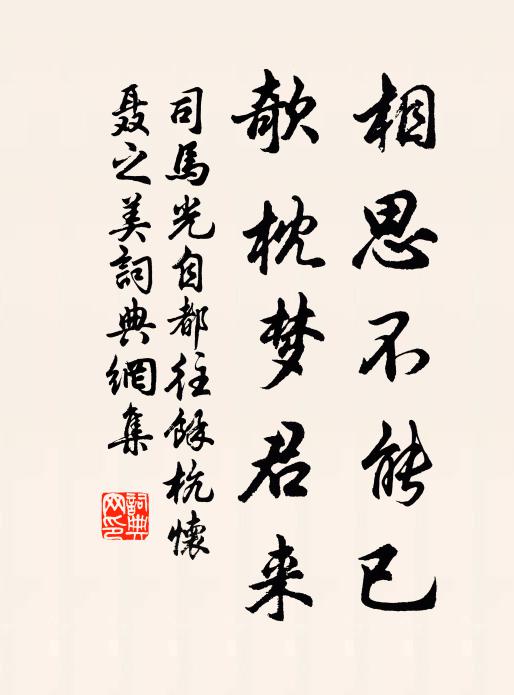 相思不能已
欹枕梦君来
司馬光自都往餘杭懷
聂之美詞典網集
詞典
网印